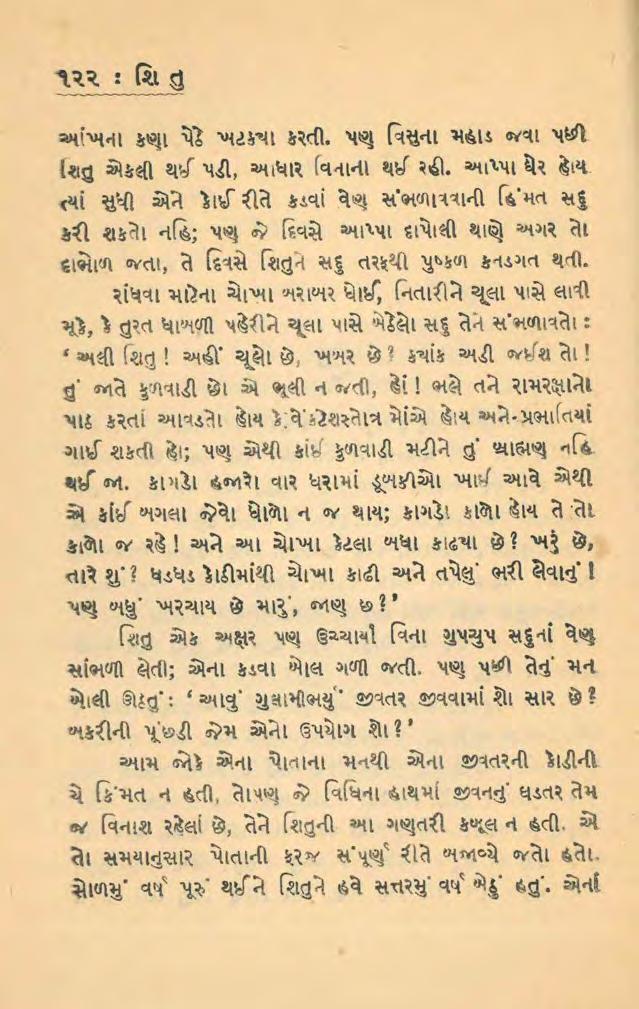 ૧૨૨ : શિ તુ
આંખના કણા પેઠે ખટક્યા કરતી. પણ વિસુના મહાડ જવા પછી
શિતુ એકલી થઈ પડી, આધાર વિનાની થઈ રહી. આપ્પા ઘેર હોય
ત્યાં સુધી એને કોઈ રીતે કડવાં વેણ સંભળાવવાની હિંમત સદુ
કરી શકતો નહિ; પણ જે દિવસે આપ્પા દાપોલી થાણે અગર તો
દાભોળ જતા, તે દિવસે શિતુને સદુ તરફથી પુષ્કળ કનડગત થતી.
રાંધવા માટેના ચોખા બરાબર ધોઈ, નિતારીને ચૂલા પાસે લાવી
મૂકે, કે તુરત ધાબળી પહેરીને ચૂલા પાસે બેઠેલો સદુ તેને સંભળાવતો :
‘ અલી શિતુ ! અહીં ચૂલો છે, ખબર છે ? ક્યાંક અડી જઈશ તો !
તું જાતે કુળવાડી છો એ ભૂલી ન જતી, હોં ! ભલે તને રામરક્ષાનો
પાઠ કરતાં આવડતો હોય કે વેંકટેશસ્તોત્ર મોંએ હોય અને પ્રભાતિયાં
ગાઈ શકતી હો; પણ એથી કાંઈ કુળવાડી મટીને તું બ્રાહ્મણ નહિ
થઈ જા. કાગડો હજારો વાર ધરામાં ડૂબકીઓ ખાઈ આવે એથી
એ કાંઈ બગલા જેવો ધોળો ન જ થાય; કાગડો કાળો હોય તે તો
કાળો જ રહે ! અને આ ચોખા કેટલા બધા કાઢ્યા છે ? ખરું છે,
તારે શું ? ધડધડ કોઠીમાંથી ચોખા કાઢી અને તપેલું ભરી લેવાનું !
પણ બધું ખરચાય છે મારું, જાણ છ ?’
શિતુ એક અક્ષર પણ ઉચ્ચાર્યા વિના ગુપચુપ સદુનાં વેણ
સાંભળી લેતી; એના કડવા બોલ ગળી જતી. પણ પછી તેનું મન
બોલી ઊઠતું : ‘ આવું ગુલામીભર્યું જીવતર જીવવામાં શો સાર છે ?
બકરીની પૂંછડી જેમ એનો ઉપયોગ શો ?’
આમ જોકે એના પોતાના મનથી એના જીવતરની કોડીની
યે કિંમત ન હતી, તોપણ જે વિધિના હાથમાં જીવનનું ઘડતર તેમ
જ વિનાશ રહેલાં છે, તેને શિતુની આ ગણતરી કબૂલ ન હતી. એ
તો સમયાનુસાર પોતાની ફરજ સંપૂર્ણ રીતે બજાવ્યે જતો હતો.
સોળમું વર્ષ પૂરું થઈને શિતુને હવે સત્તરમું વર્ષ બેઠું હતું. એનાં